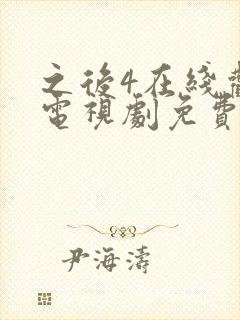 之後4在綫
電視劇免費
尹海濤